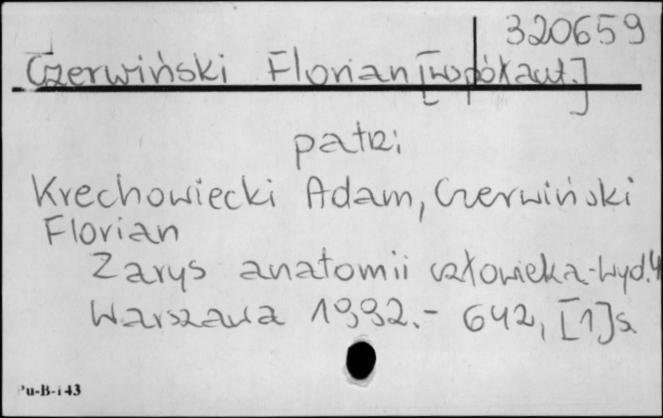 320659
Czerwiński Florian [współaut.]
patrz:
Krechowiecki Adam, Czerwiński
Florian
Zarys anatomii człowieka.-Wyd.4
Warszawa 1992.- 642, [1]s.
Pu-B-143